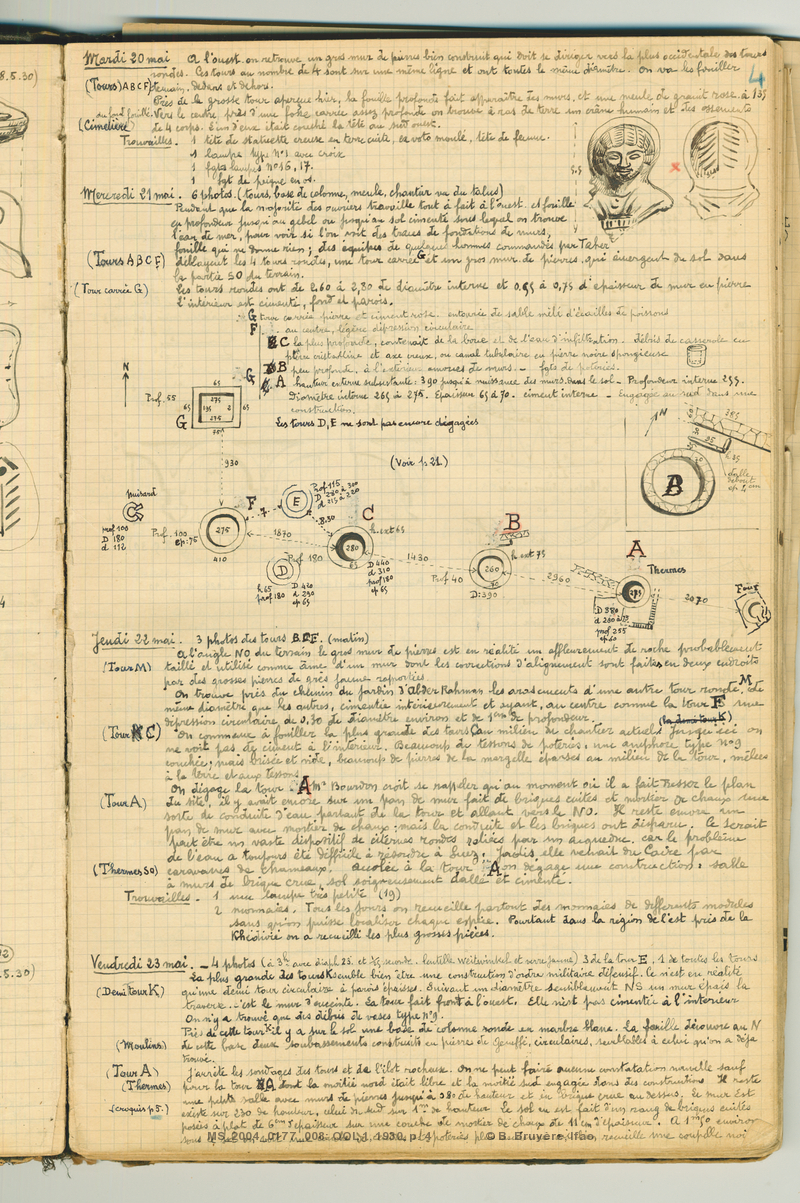 8.5.30)
4
Mardi 20 mai A l'ouest on retrouve un gros mur de pierres bien construit qui doit se diriger vers la plus occidentale des tours
rondes. Ces tours au nombre de 4 sont sur une même ligne et ont toutes le même diamètre. On va les fouiller
(Tours) A B C F) terrain, dedans et dehors.
Près de la grosse tour aperçue hier, la fouille profonde fait apparaître des murs, et une meule de granit rose. à 1.35
au fond fouille. Vers le centre, près d'une fosse carrée assez profonde on trouve à ras de terre un crâne humain et des ossements
(Cimetière) de 4 corps. L'un d'eux était couché la tête au sud ouest.
Trouvailles. 1 tête de statuette creuse en terre cuite, ex voto moulé, tête de femme.
1 lampe type N°1 avec croix
1 fgts lampes N° 16, 17.
1 fgt de peigne en os.
Mercredi 21 mai. 6 photos. (tours, base de colonne, meule, chantier vu du talus)
Pendant que la majorité des ouvriers travaille tout à fait à l'ouest. et fouille
en profondeur jusqu'au gebel ou jusqu'au sol cimenté sous lequel on trouve
l'eau de mer, pour voir si l'on voit des traces de fondations de murs,
fouille qui ne donne rien; des équipes de quelques hommes commandés par Taher
(Tours A B C F) déblayent les 4 tours rondes, une tour carrée G et un gros mur de pierres, qui émergent du sol dans
la partie SO du terrain.
(Tour carrée G) Les tours rondes ont de 2.60 à 2,80 de diamètre interne et 0,65 à 0,75 d'épaisseur de mur en pierre
L'intérieur est cimenté, fond et parois.
G tour carrée pierre et ciment rose. entourée de sable mêlé d'écailles de poissons
F . au centre, légère dépression circulaire
C la plus profonde, contenait de la boue et de l'eau d'infiltration. débris de casserole en
pierre cristalline et axe creux, ou canal tubulaire en pierre noire spongieuse
B peu profonde, à l'extérieur amorces de murs. - fgts de poteries.
A hauteur externe subsistante: 390 jusqu'à naissance des murs dans le sol - Profondeur interne 255.
Diamètre interne 265 à 275. Epaisseur 65 à 70. ciment interne - engagée au sud dans une
construction.
Les tours D, E ne sont pas encore dégagées
(Voir p. 21)
N
Prof. 55
G
65
275
65
930
puisard
prof 100
D 180
d 112
F
Prof. 100
ep. 75
275
410
7
E
Prof 115
1870
8.30
C
h. ext 65
280
65
Prof 180
D
h. 65
prof 180
D 420
d 290
ep 65
D 440
d 310
prof 180
ep 65
1430
B
h. ext 75
260
Prof 40
D: 390
2960
A
Thermes
275
prof 255
2070
Four
N
B
285
Jeudi 22 mai. 3 photos des tours B C F. (matin)
A l'angle NO du terrain le gros mur de pierres est en réalité un affleurement de roche probablement
(Tour M) taillé et utilisé comme âme d'un mur dont les corrections d'alignement sont faites en deux endroits
par des grosses pierres de grès jaune rapportées.
On trouve près du chemin du jardin d'Abder Rahman les arasements d'une autre tour ronde M, de
même diamètre que les autres, cimentée intérieurement et ayant, au centre comme la tour F une
dépression circulaire de 0,30 de diamètre environ et de 1cm de profondeur.
(Tour C) On commence à fouiller la plus grande des tours C au milieu du chantier actuel. Jusqu'ici on
ne voit pas de ciment à l'intérieur. Beaucoup de tessons de poteries, une amphore type N°9
couchée; mais brisée et vide, beaucoup de pierres de la margelle éparses au milieu de la tour, mêlées
à la terre et aux tessons.
(Tour A) On dégage la tour A. Mr Bourdon croit se rappeler qu'au moment où il a fait dresser le plan
du site, il y avait encore sur un pan de mur fait de briques cuites et mortier de chaux une
sorte de conduite d'eau partant de la tour et allant vers le NO. Il reste encore un
pan de mur avec mortier de chaux; mais la conduite et les briques ont disparu. Ce serait
peut être un vaste dispositif de citernes rondes reliées par un aqueduc, car le problème
de l'eau a toujours été difficile à résoudre à Suez. Jadis, elle venait du Caire par
(Thermes SO) caravanes de chameaux. Accolée à la tour A on dégage une construction: salle
à murs de brique crue, sol soigneusement dallé et cimenté.
Trouvailles. 1 une lampe très petite (19)
2 monnaies. Tous les jours on recueille partout des monnaies de différents modules
sans qu'on puisse localiser chaque espèce. Pourtant dans la région de l'est près de la
Khédivié on a recueilli les plus grosses pièces.
Vendredi 23 mai. - 4 photos 3 de la tour E, 1 de toutes les tours
La plus grande des tours K semble bien être une construction d'ordre militaire défensif. Ce n'est en réalité
(Demi tour K) qu'une demi tour circulaire à parois épaisses. Suivant un diamètre sensiblement NS un mur épais la
traverse. C'est le mur d'enceinte. La tour fait front à l'ouest. Elle n'est pas cimentée à l'intérieur
On n'y a trouvé que des débris de vases type N°9.
Près de cette tour K il y a sur le sol une base de colonne ronde en marbre blanc. La fouille découvre au N
(Moulins) de cette base deux soubassements construits en pierre de Geneffé, circulaires, semblables à celui qu'on a déjà
trouvé.
(Tour A) J'arrête les sondages des tours et de l'îlot rocheux. On ne peut faire aucune constatation nouvelle sauf
(Thermes) pour la tour A dont la moitié nord était libre et la moitié sud engagée dans des constructions. Il reste
une petite salle avec murs de pierres jusqu'à 0.80 de hauteur et en brique crue au dessus. Le mur Est
(croquis p 5.) existe sur 230 de hauteur, celui du sud sur 1m de hauteur. Le sol en est fait d'un rang de briques cuites
posées à plat de 6cm d'épaisseur sur une couche de mortier de chaux de 11 cm d'épaisseur. A 1m50 environ
MS_2004_0177_008 QOL1_1930, p. 4 © B. Bruyère, Ifao